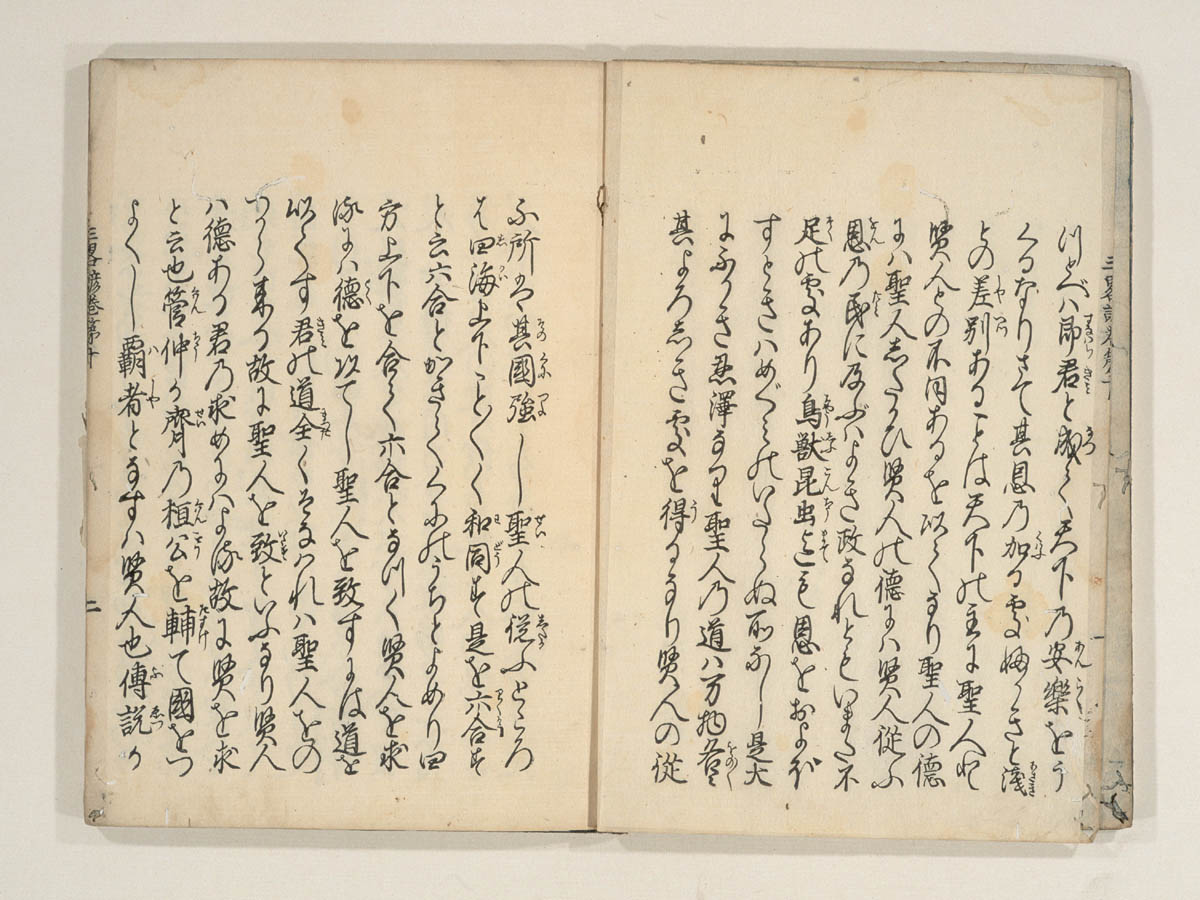 れべハ即君と成て天下乃安樂をう
くるなりさて其恩乃加る処深きと淺
との差別あることは天下の主に聖人と
賢人との不同あるを以てなり聖人の德
にハ聖人したかひ賢人の德にハ賢人従ふ
恩乃民に及ぶハよき政なれともいまた不
足の処あり鳥獣昆虫迄も恩をおよほ
すときハめぐみのいたらぬ所なし是大
にふかき恩澤なり聖人乃道ハ万物各
其よろしき処を得るなり賢人の従
ふ所は其國強し聖人の従ふところ
は四海上下こと〱く和同す是を六合す
と云六合とかきてくにのうちとよめり四
方上下を合て六合となつく賢人を求
るにハ德を以てし聖人を致すには道を
以てす君の道全くそなはれハ聖人をの
つから来る故に聖人を致といふなり賢人
ハ德ある君乃求めにハよる故に賢を求
と云也管仲か齊乃桓公を輔て國をつ
よくし覇者となすハ賢人也傳説か
三略諺巻第十
二